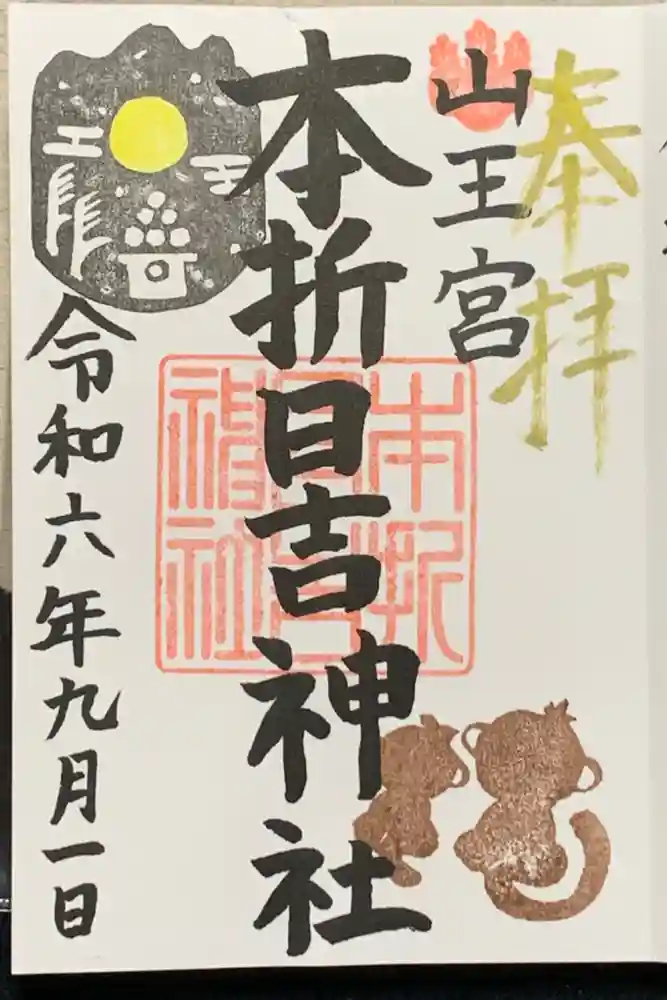 奉拝
山王宮
本折日吉神社
本折
日吉
神社
令和六年九月一日